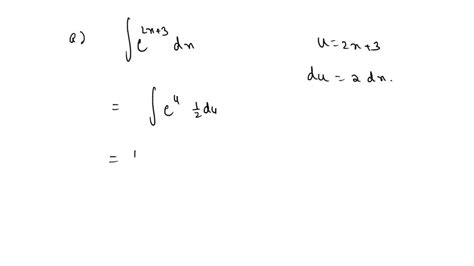 a) ∫e^{2x+3} dx
u = 2x+3
du = 2 dx.
= ∫e^u 1/2 du
=